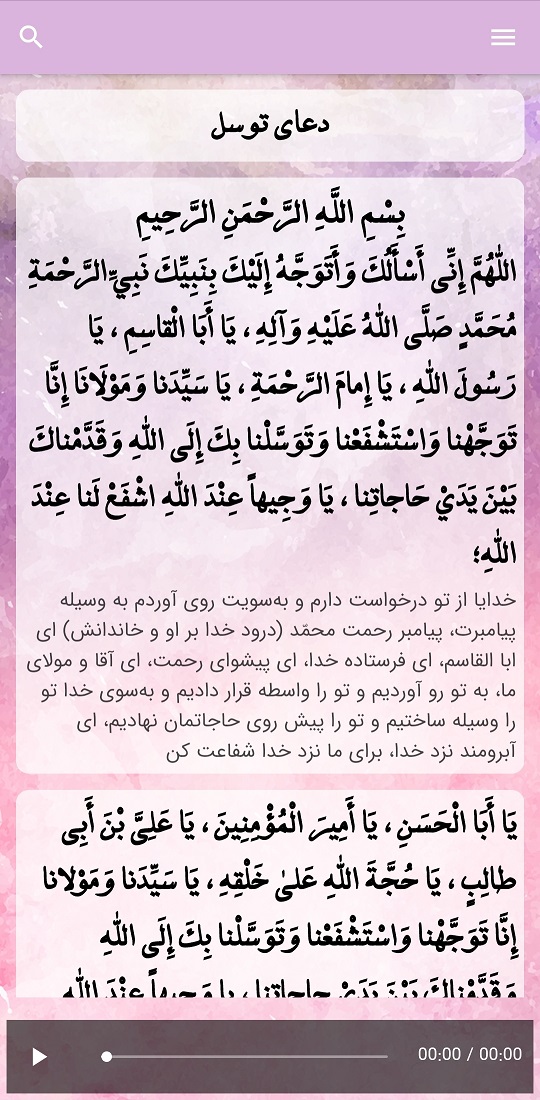 دعای توسل
بِسْمِ اللَّهِ الرَّحْمَنِ الرَّحِيمِ
اللّٰهُمَّ إِنِّى أَسْأَلُكَ وَأَتَوَجَّهُ إِلَيْكَ بِنَبِيِّكَ نَبِيِّ الرَّحْمَةِ
مُحَمَّدٍ صَلَّى اللّٰهُ عَلَيْهِ وَآلِهِ ، يَا أَبَا الْقاسِمِ ، يَا
رَسُولَ اللّٰهِ ، يَا إِمامَ الرَّحْمَةِ ، يَا سَيِّدَنا وَمَوْلَانَا إِنَّا
تَوَجَّهْنا وَاسْتَشْفَعْنا وَتَوَسَّلْنا بِكَ إِلَى اللّٰهِ وَقَدَّمْناكَ
بَيْنَ يَدَيْ حَاجاتِنا ، يَا وَجِيهاً عِنْدَ اللّٰهِ اشْفَعْ لَنا عِنْدَ
اللّٰهِ؛
خدایا از تو درخواست دارم و به‌سویت روی آوردم به وسیله
پیامبرت، پیامبر رحمت محمّد (درود خدا بر او و خاندانش) ای
ابا القاسم، ای فرستاده خدا، ای پیشوای رحمت، ای آقا و مولای
ما، به تو رو آوردیم و تو را واسطه قرار دادیم و به‌سوی خدا تو
را وسیله ساختیم و تو را پیش روی حاجاتمان نهادیم، ای
آبرومند نزد خدا، برای ما نزد خدا شفاعت کن
يَا أَبَا الْحَسَنِ ، يَا أَمِيرَ الْمُؤْمِنِينَ ، يَا عَلِيَّ بْنَ أَبِى
طالِبٍ ، يَا حُجَّةَ اللّٰهِ عَلىٰ خَلْقِهِ ، يَا سَيِّدَنا وَمَوْلانا
إِنَّا تَوَجَّهْنا وَاسْتَشْفَعْنا وَتَوَسَّلْنا بِكَ إِلَى اللّٰهِ
وَقَدَّمْناكَ بَيْنَ يَدَيْ حاجاتِنا ، يا وَجِيهاً عِنْدَ اللّٰهِ
00:00 / 00:00